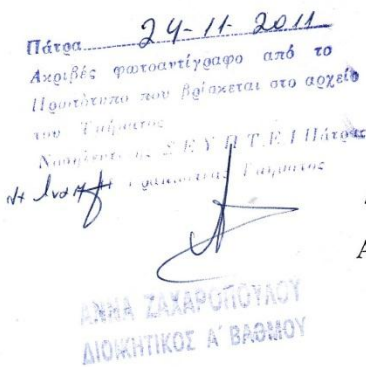 Πάτρα 24-11-2011
Ακριβές φωτοαντίγραφο από το
Πρωτότυπο που βρίσκεται στο αρχείο
του Τμήματος
Νοσηλευτικής Σ.Ε.Υ.Π Τ.Ε.Ι Πάτρας
Γραμματέας Τμήματος
Α
ΑΝΝΑ ΖΑΧΑΡΟΠΟΥΛΟΥ
ΔΙΟΙΚΗΤΙΚΟΣ Α΄ ΒΑΘΜΟΥ